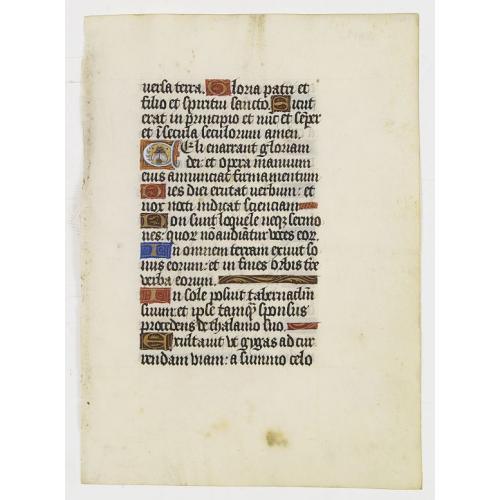 versa terra. Gloria patri et
filio et spiritui sancto. Sicut
erat in principio et nūc et sēper
et ī secula seculorum amen.
Celi enarrant gloriam
dei: et opera manuum
eius annunciat firmamentum
Dies diei eructat verbum: et
nox nocti indicat scienciam
Non sunt loquele neqȝ sermo
nes: quor nō audiātur voces eor.
In omnem terram exivit so
nus eorum: et in fines orbis tre
verba eorum.
In sole posuit tabernaclm
suum: et ipse tamqȝ sponsus
procedens de thalamo suo.
Exultavit ut gygas ad cur
rendam viam: a summo celo